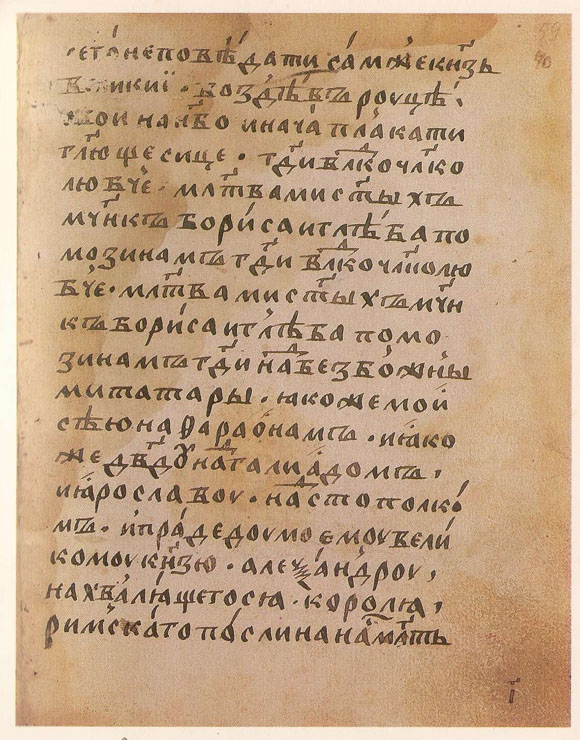 сего не повѣдати самже кнзь
великиї. воздѣвъ руцѣ,
свои на нб҃о иначаплакати
гл҃юще сице. гд҃и влⷣко чл҃ко
любче. мл҃твами ст҃ыхъ
мч҃нкъ бориса и глѣба по
мози намъ гд҃и влⷣко чл҃колю
бче. мл҃твами ст҃ыхъ мч҃н
къ бориса и глѣба помо
зи намъ гд҃и наⷣ безбожны
ми татары. ꙗкоже моѝ
сѣю на фараонамъ. и ꙗко
же дв҃ду наⷣ галиадомъ,
и ꙗрославоу. наⷣ с҃тополко
мъ. и прадедоу моемоу вели
комоу кн҃зю. алеѯандроу,
на хвалꙗщегосꙗ. королꙗ,
римскаго пославша на